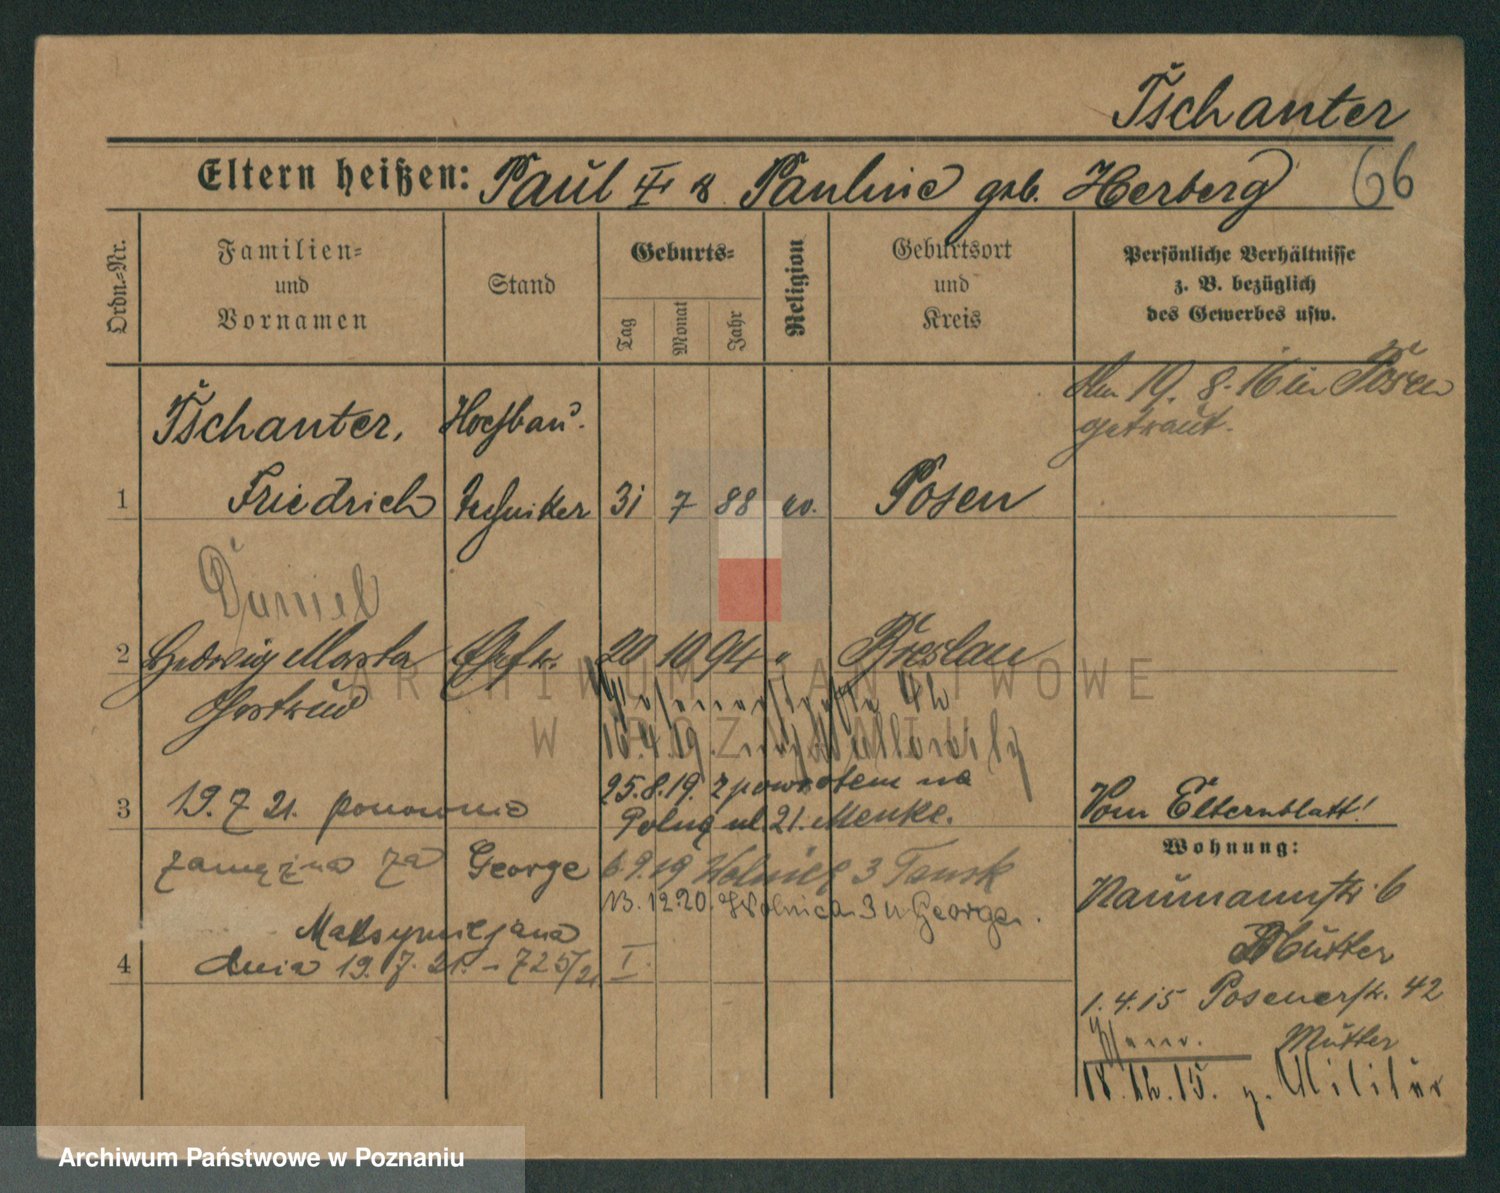 Tschanter
Eltern heißen: Paul II & Pauline geb. Herberg 66
Ordn.=Nr.
Familien=
und
Vornamen
Stand
Geburts=
Tag
Monat
Jahr
Religion
Geburtsort
und
Kreis
Persönliche Verhältnisse
z. B. bezüglich
des Gewerbes usw.
Am 19. 8. 16 in Posen
getraut.
Tschanter, Hochbau
1 Friedrich techniker 31 7 88 ev. Posen
Daniel
2 Hedwig Marta Ehefr. 20 10 94 " Breslau
Gertrud
Posenerstraße 42
16.4.19.
25.8.19. z powrotem na
3 19.7 21. ponownie
Polną ul. 21. Menke.
Vom Elternblatt!
Wohnung:
zamężna za George 6 9.19 3
Naumannstr. 6
12.20. Wolnica 3 u George.
Maksymiljana
Mutter
4 dnia 19. 7. 21. - 725/21 I.
1.4.15 Posenerstr. 42
Mutter
18.12.15. z. Militär
ARCHIWUM PAŃSTWOWE
W POZNANIU
Archiwum Państwowe w Poznaniu